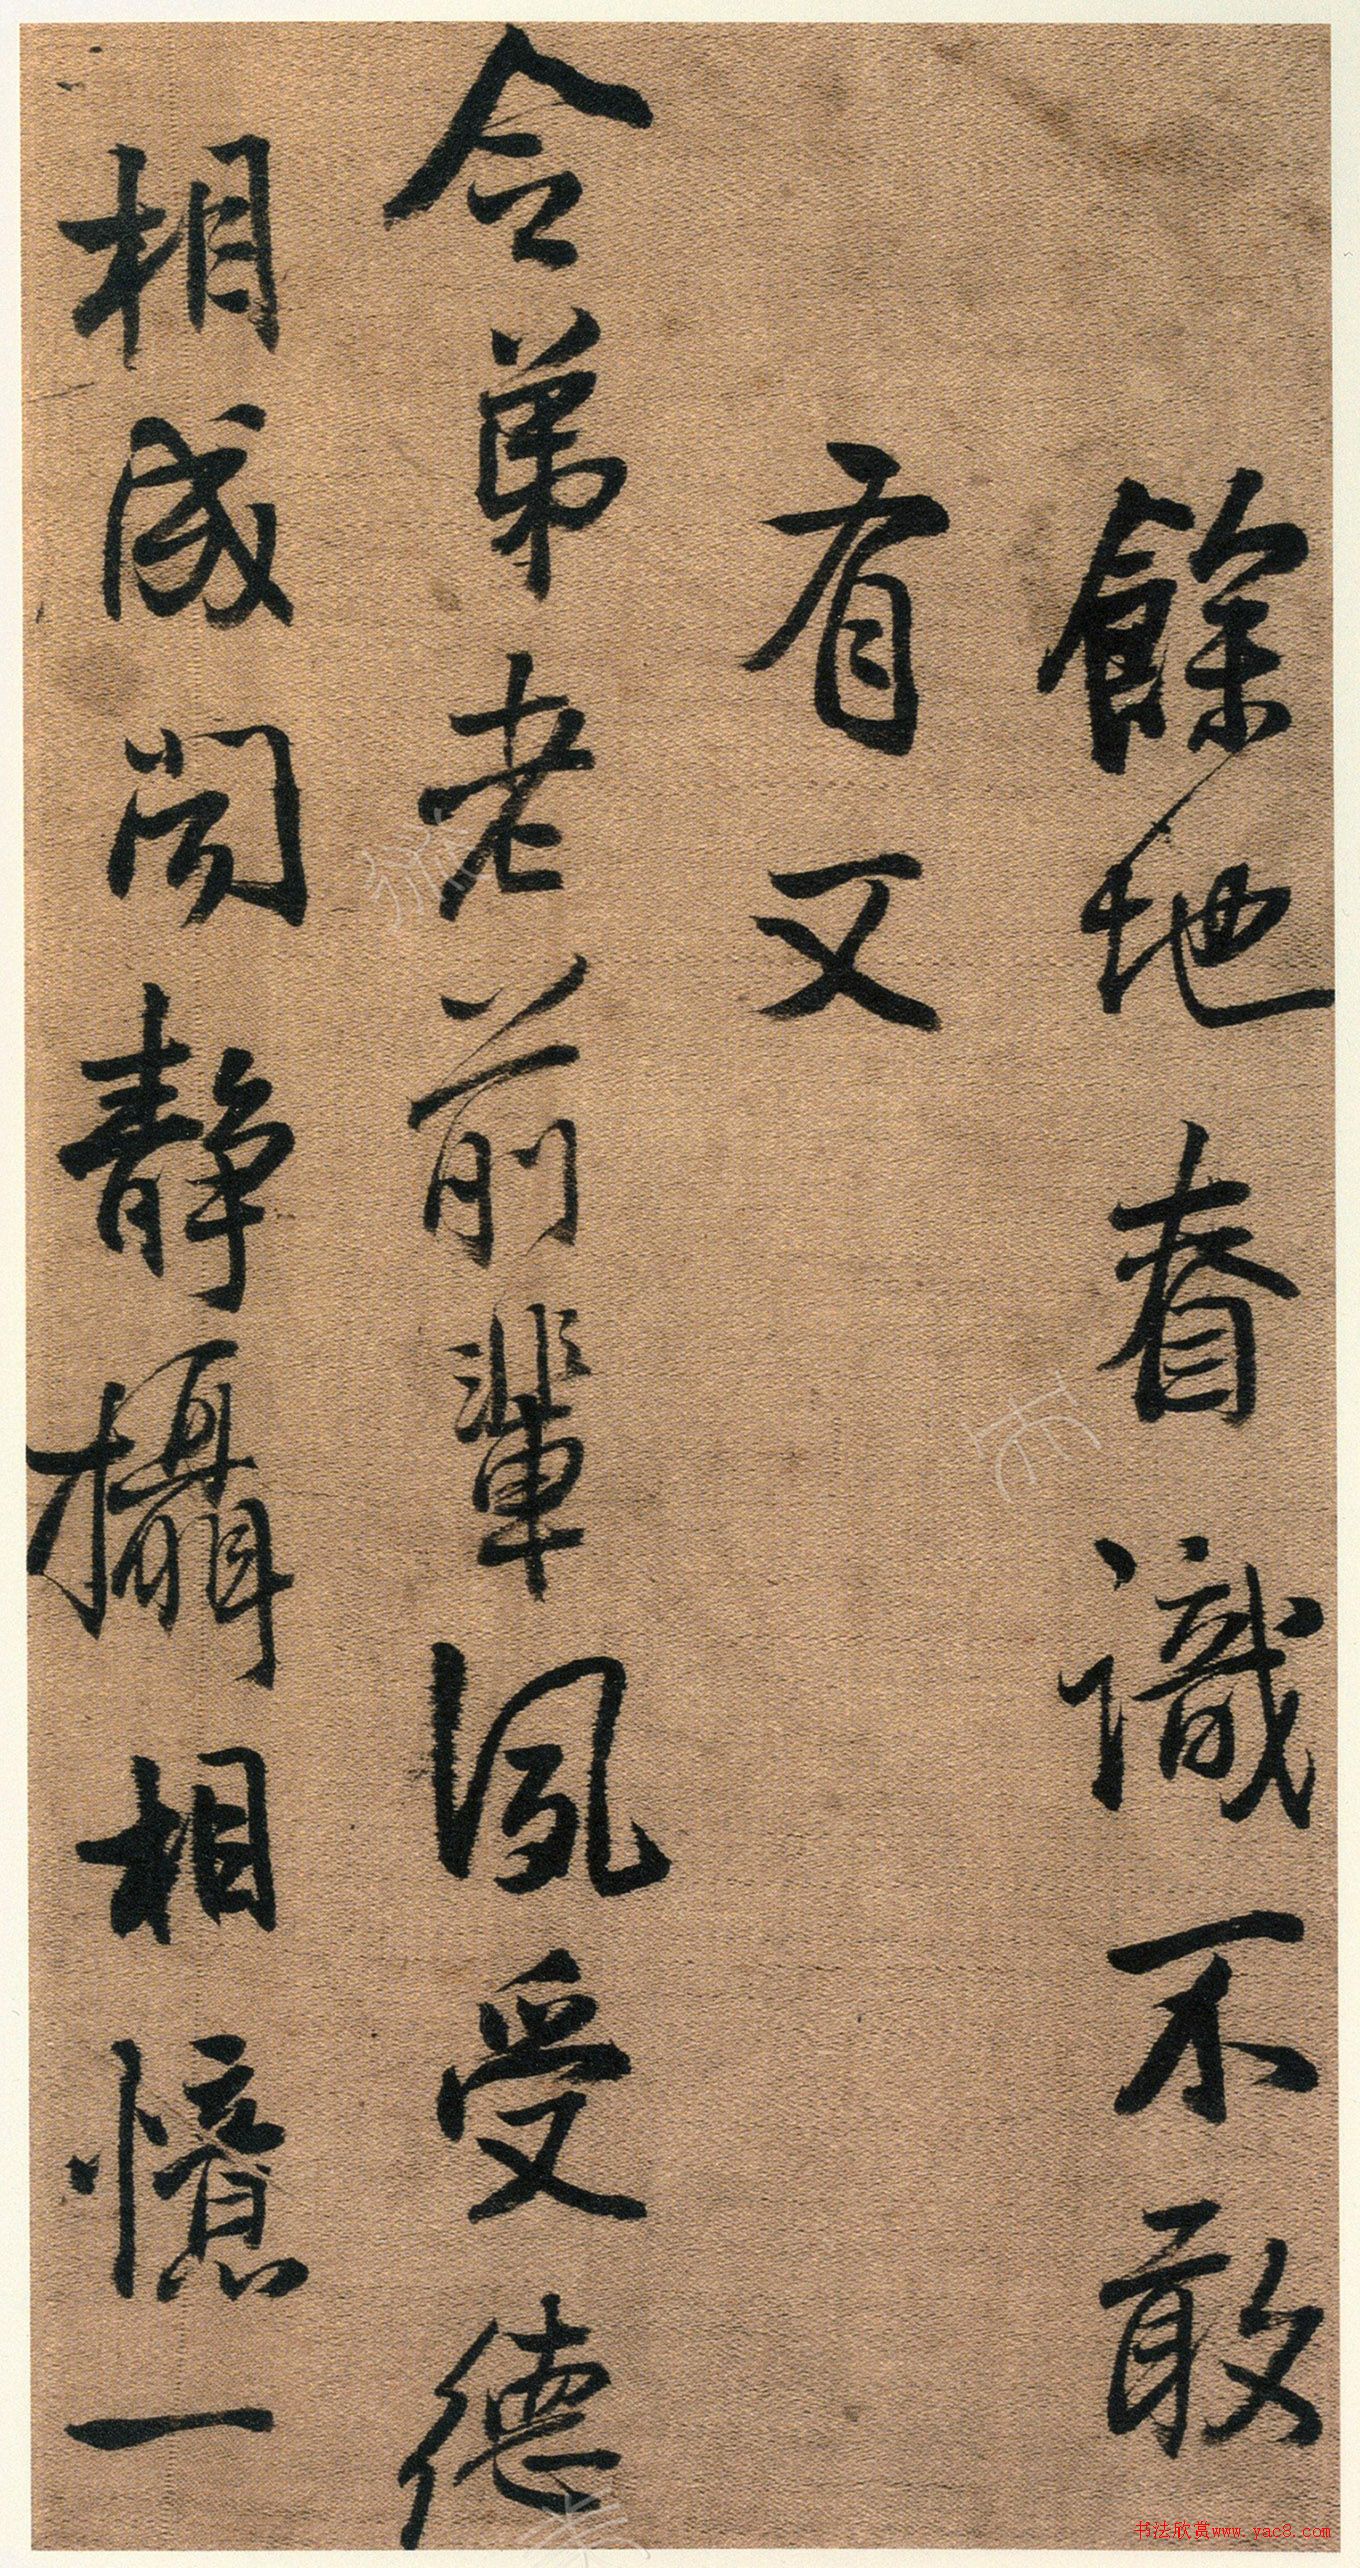 餘地眷識不敢
有又
令弟老前輩夙受德
相成閒靜攝相憶一
书法欣赏www.yac8.com